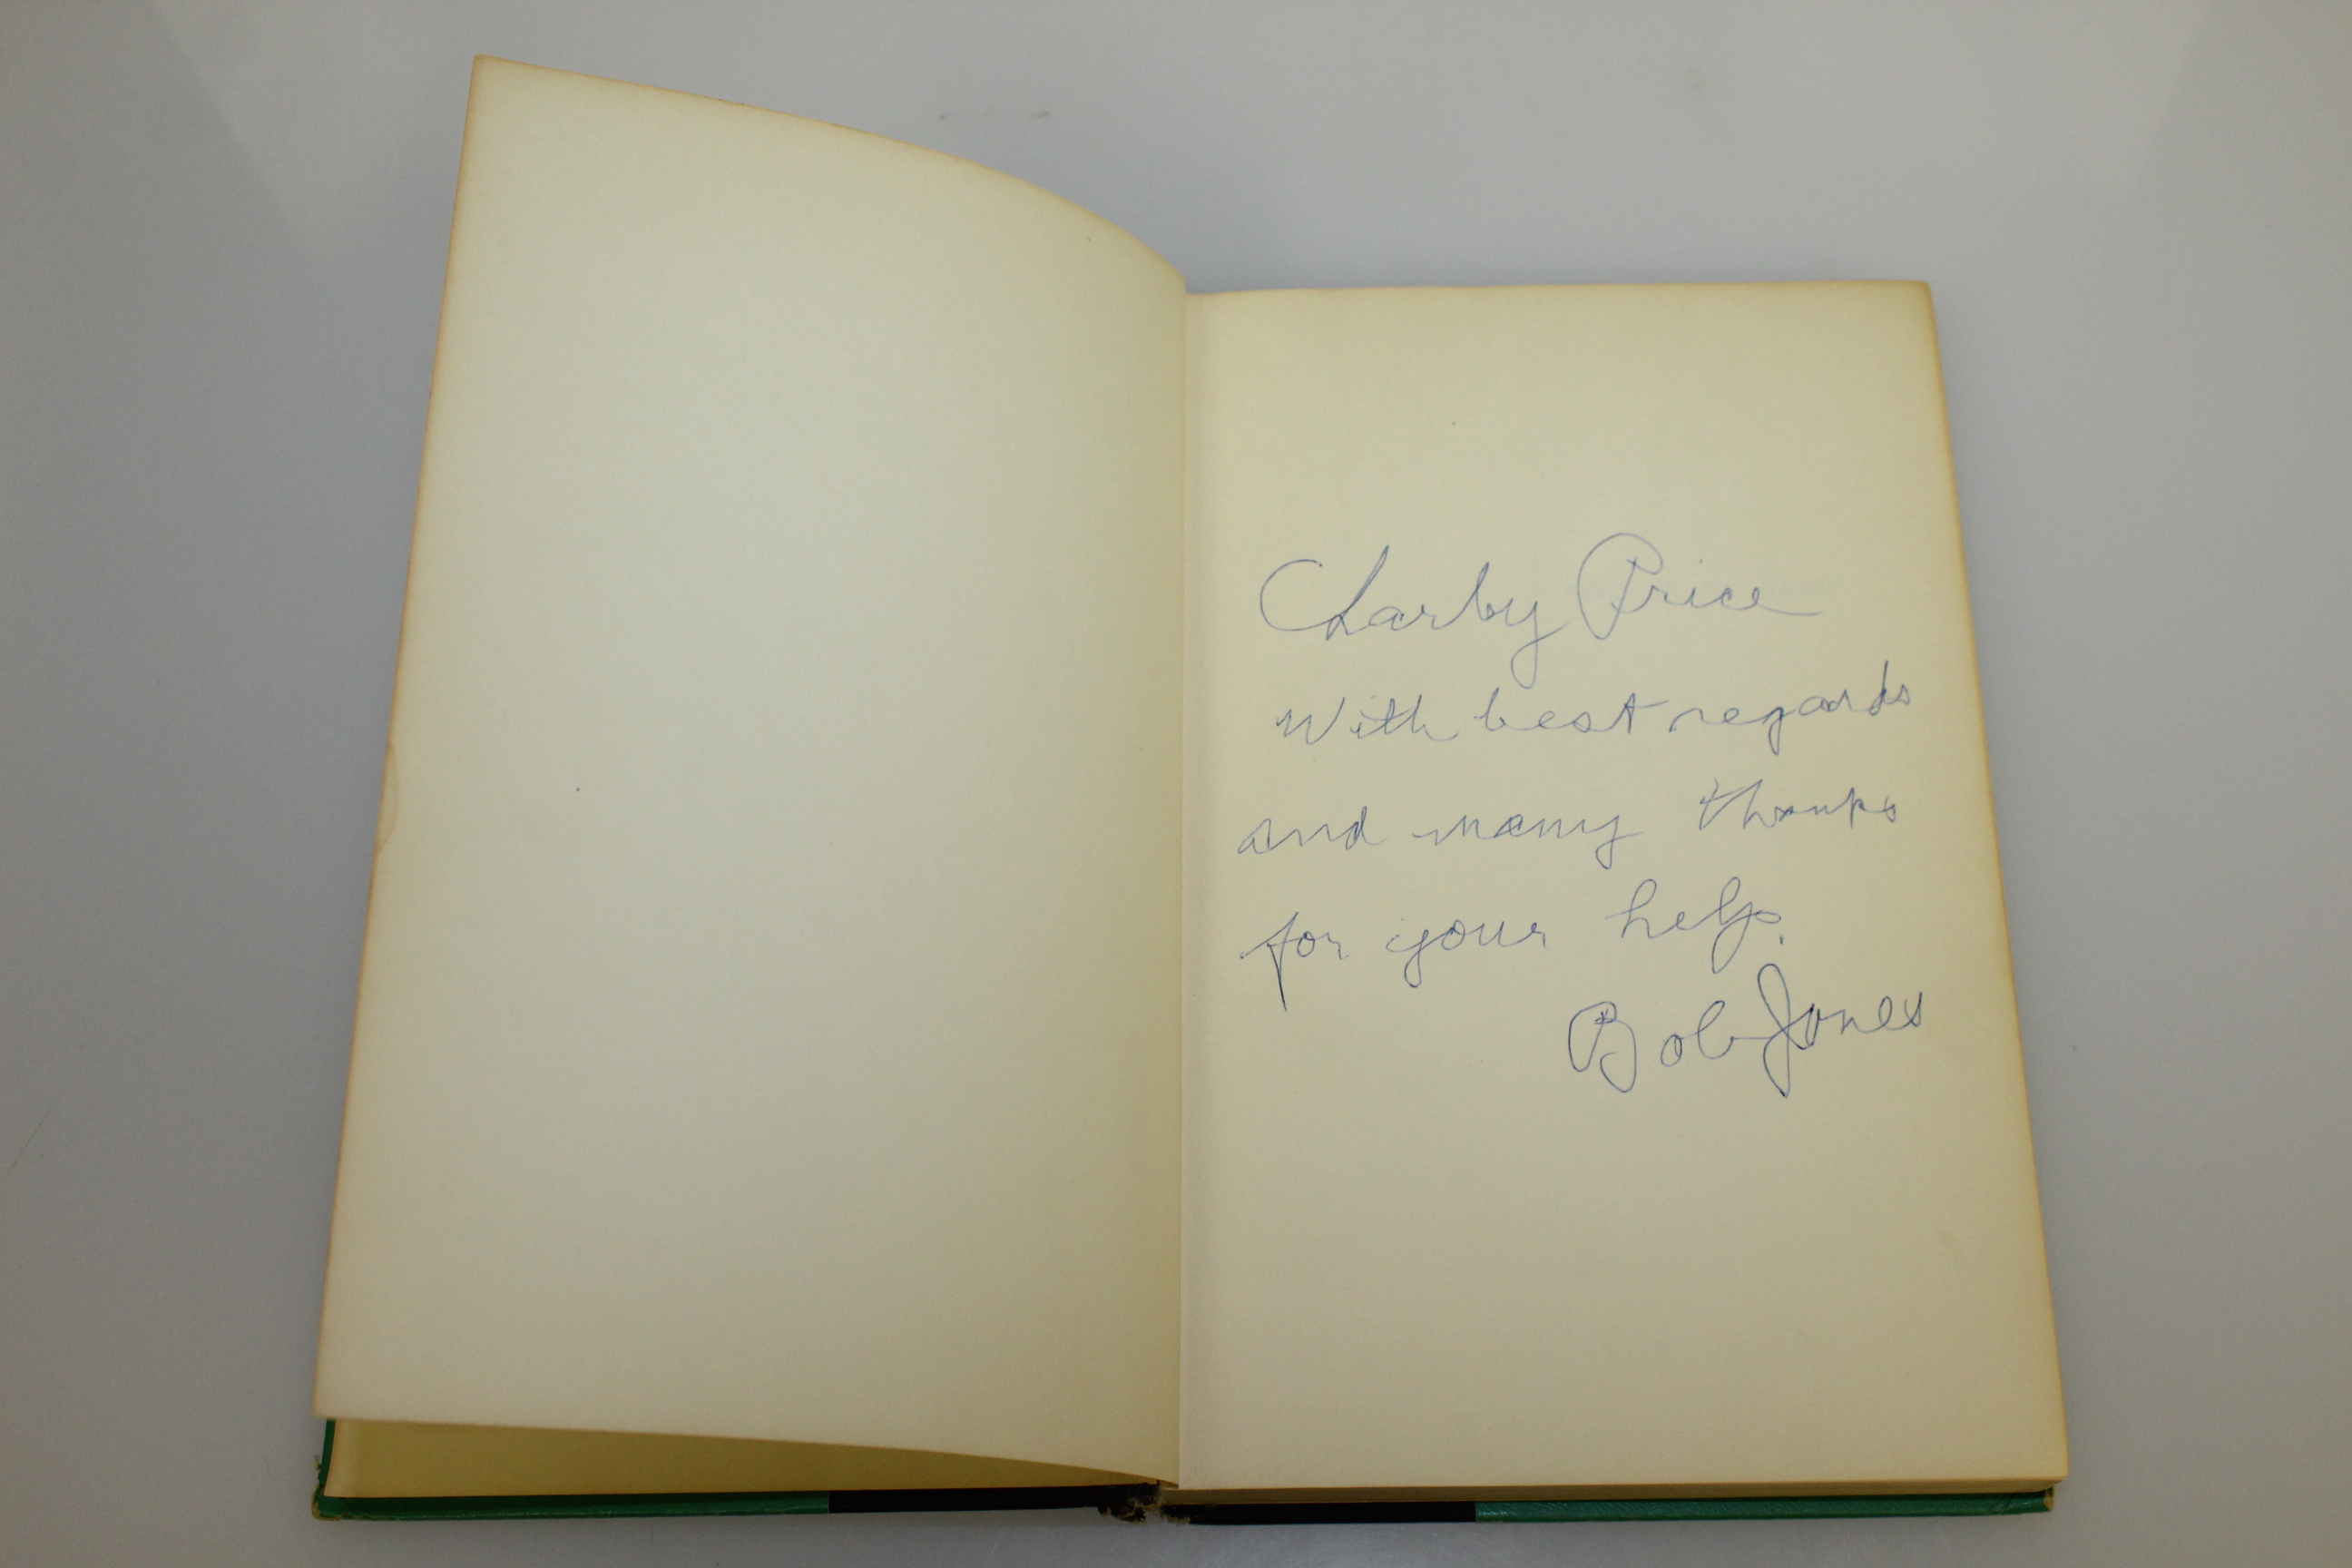 Charley Price
With best regards
and many thanks
for your help.
Bob Jones